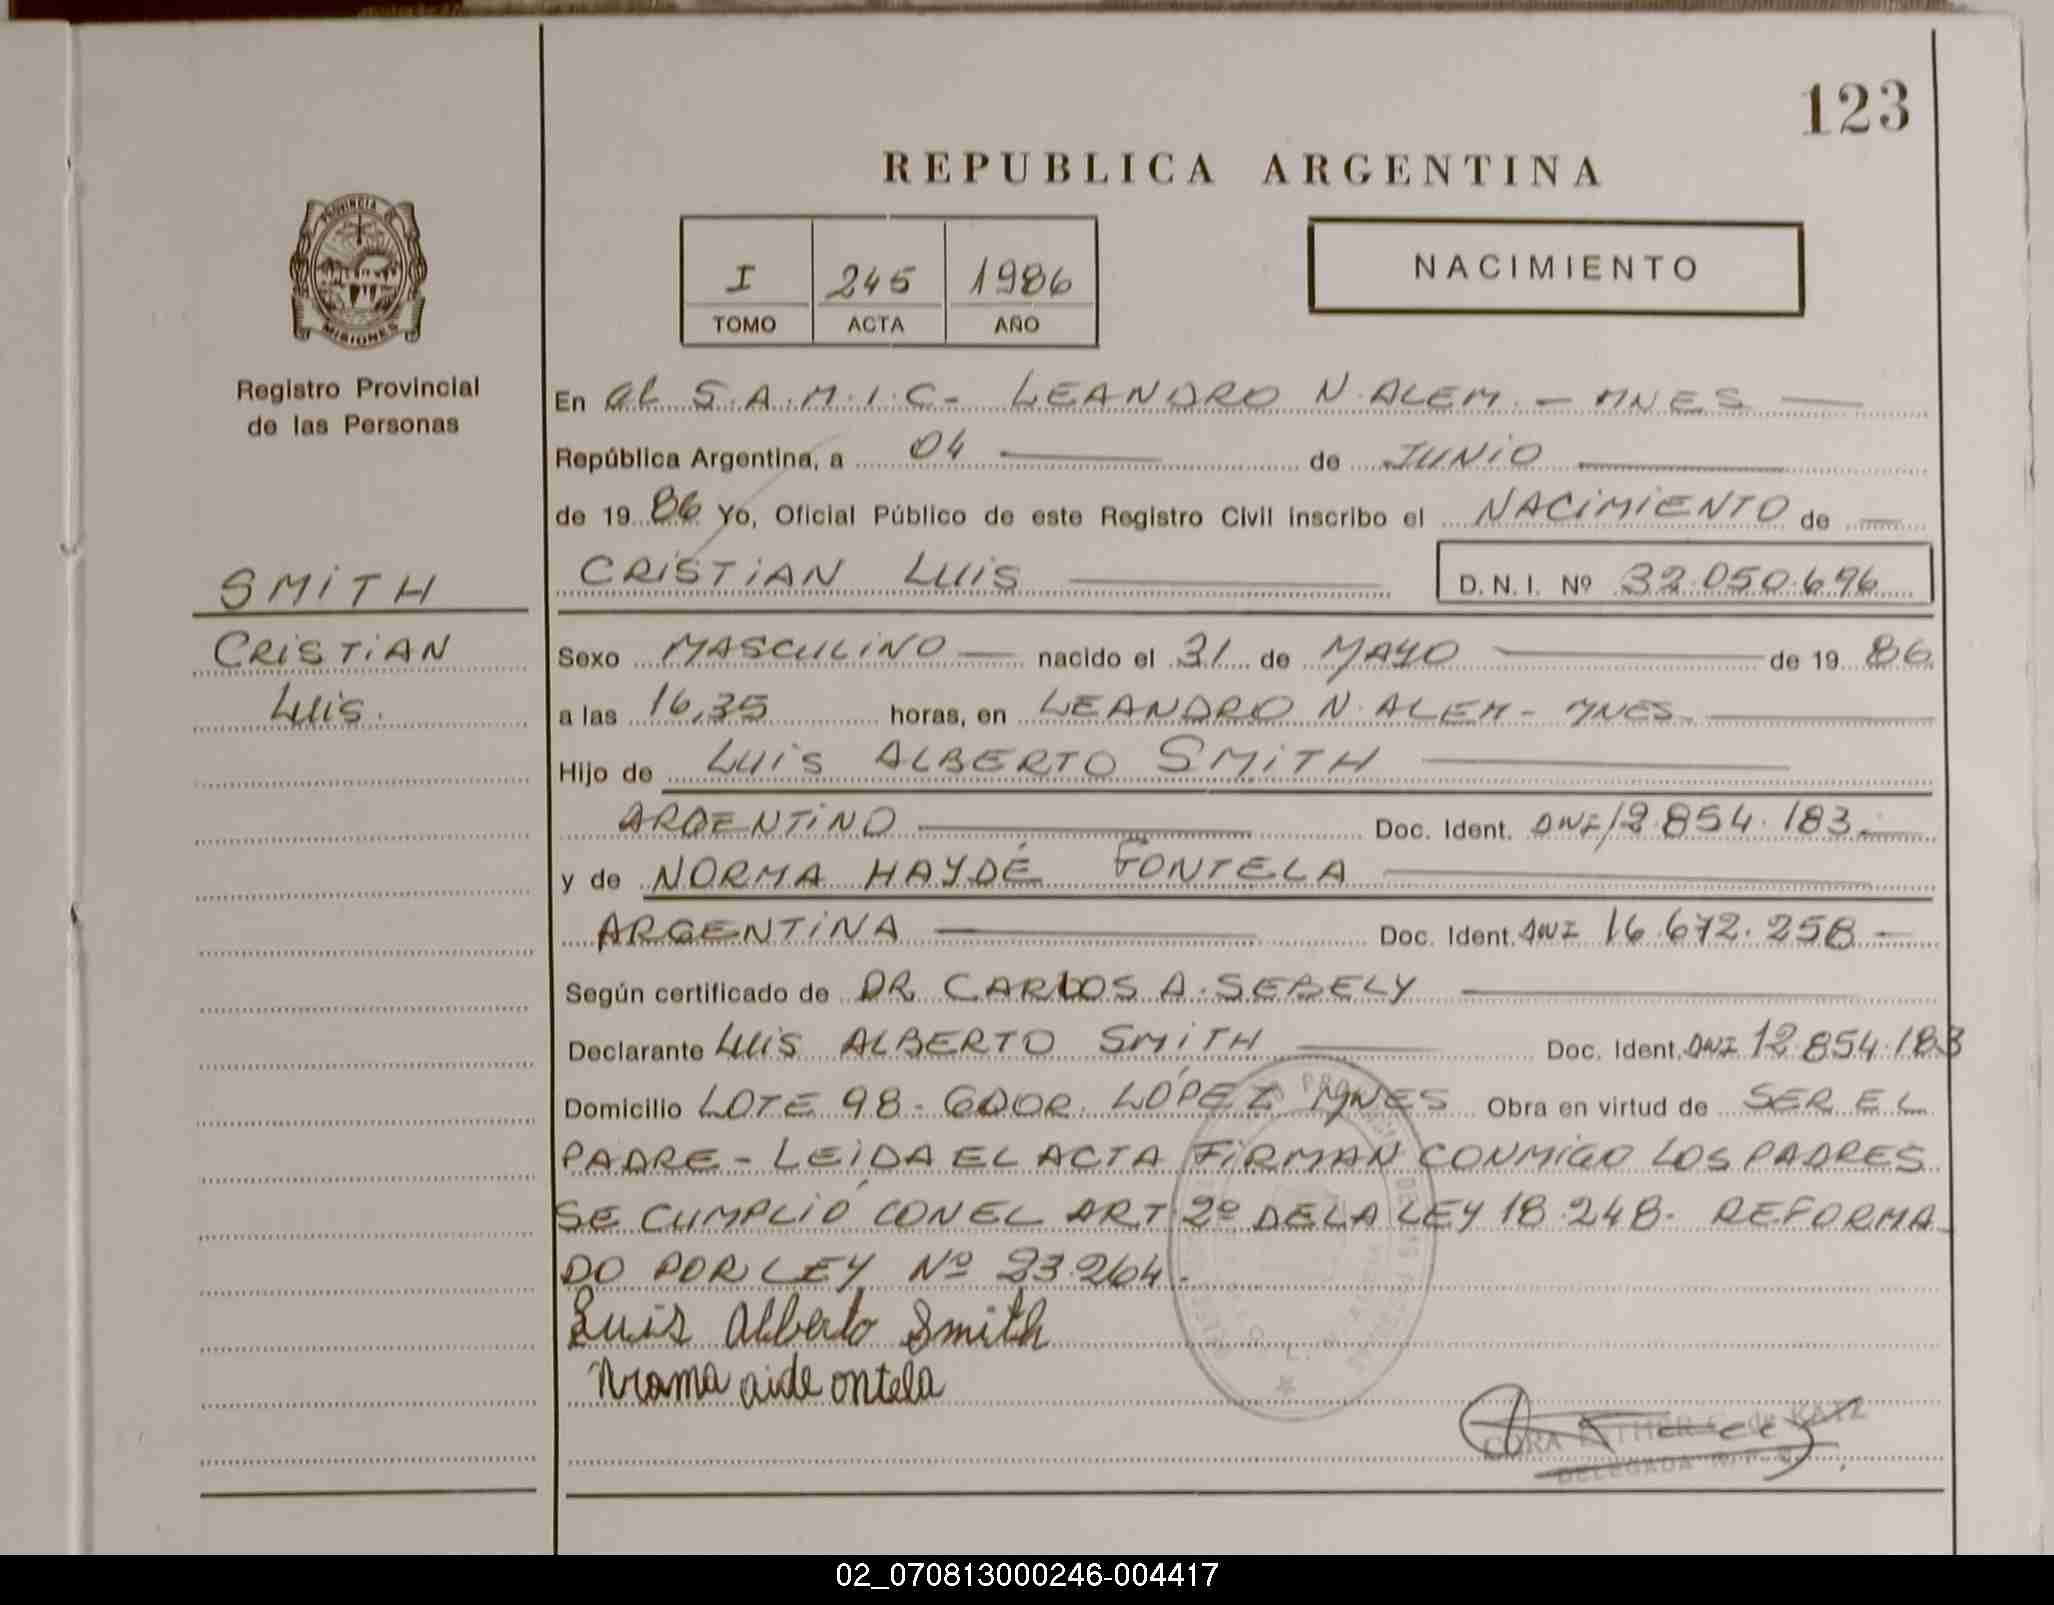 123
REPUBLICA ARGENTINA
PROVINCIA DE
MISIONES
Registro Provincial
de las Personas
I 245 1986
TOMO ACTA AÑO
NACIMIENTO
En el S.A.M.I.C- LEANDRO N.ALEM - MNES
República Argentina, a 04 de JUNIO
de 19 86 Yo, Oficial Público de este Registro Civil inscribo el NACIMIENTO de
CRISTIAN LUIS D.N.I. Nº 32.050.676
SMITH
CRISTIAN
LUIS.
Sexo MASCULINO nacido el 31 de MAYO de 19 86
a las 16,35 horas, en LEANDRO N.ALEM - MNES
Hijo de LUIS ALBERTO SMITH
ARGENTINO Doc. Ident. DNI 12.854.183-
y de NORMA HAYDÉ FONTELA
ARGENTINA Doc. Ident. DNI 16.672.258-
Según certificado de DR CARLOS A. SEBELY
Declarante LUIS ALBERTO SMITH Doc. Ident. DNI 12.854.183
Domicilio LOTE 98- GDOR. LÓPEZ MNES Obra en virtud de SER EL
PADRE - LEIDA EL ACTA FIRMAN CONMIGO LOS PADRES
SE CUMPLIÓ CON EL ART 2º DE LA LEY 18.248- REFORMA-
DO POR LEY Nº 23.264.
Luis Alberto Smith
Nroma aide ontela
CORA ESTHER de KATZ
DELEGADA
02_070813000246-004417